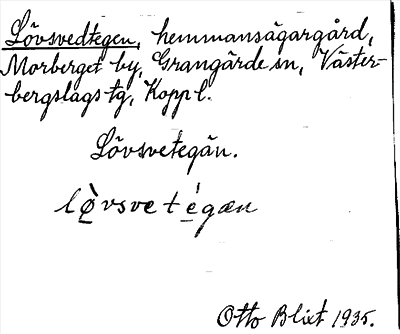 Lövsvedtegen, hemmansägargård,
Morberget by, Grangärde sn, Väster-
bergslags tg, Kopp l.
Lövsvetegän.
lø̀vsvetégæn
Otto Blixt 1935.